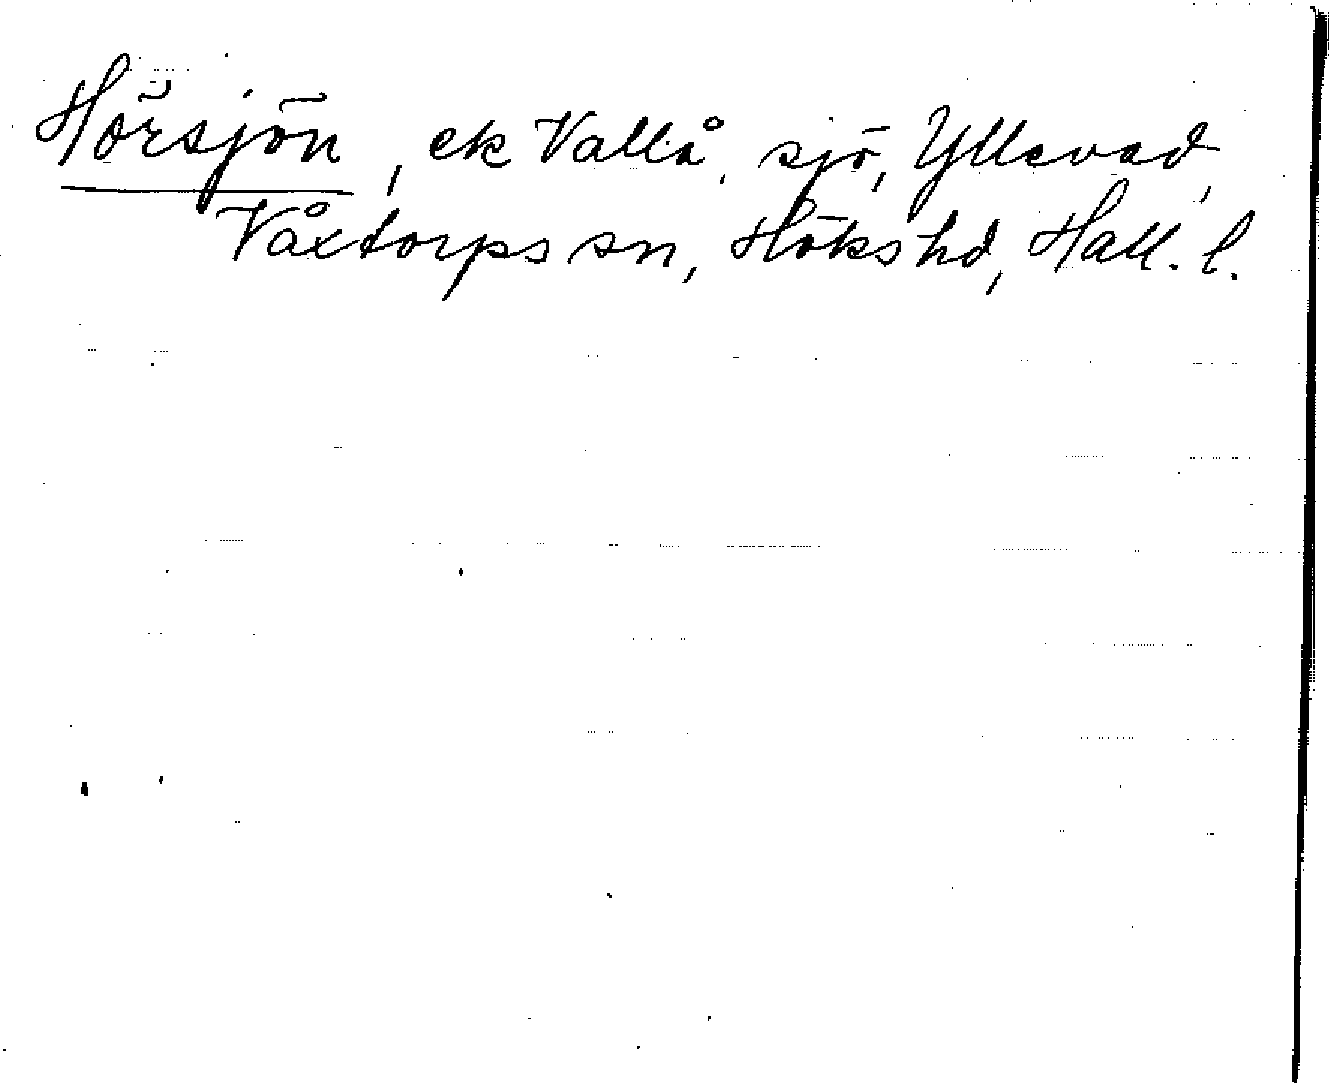 Hörsjön, ek Vallå, sjö, Yllevad,
Våxtorps sn, Höks hd, Hall. l.